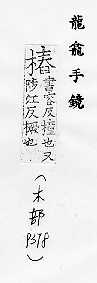 龍龕手鏡
樁書容反撞也又
陟江反橛也
(木部 P378)